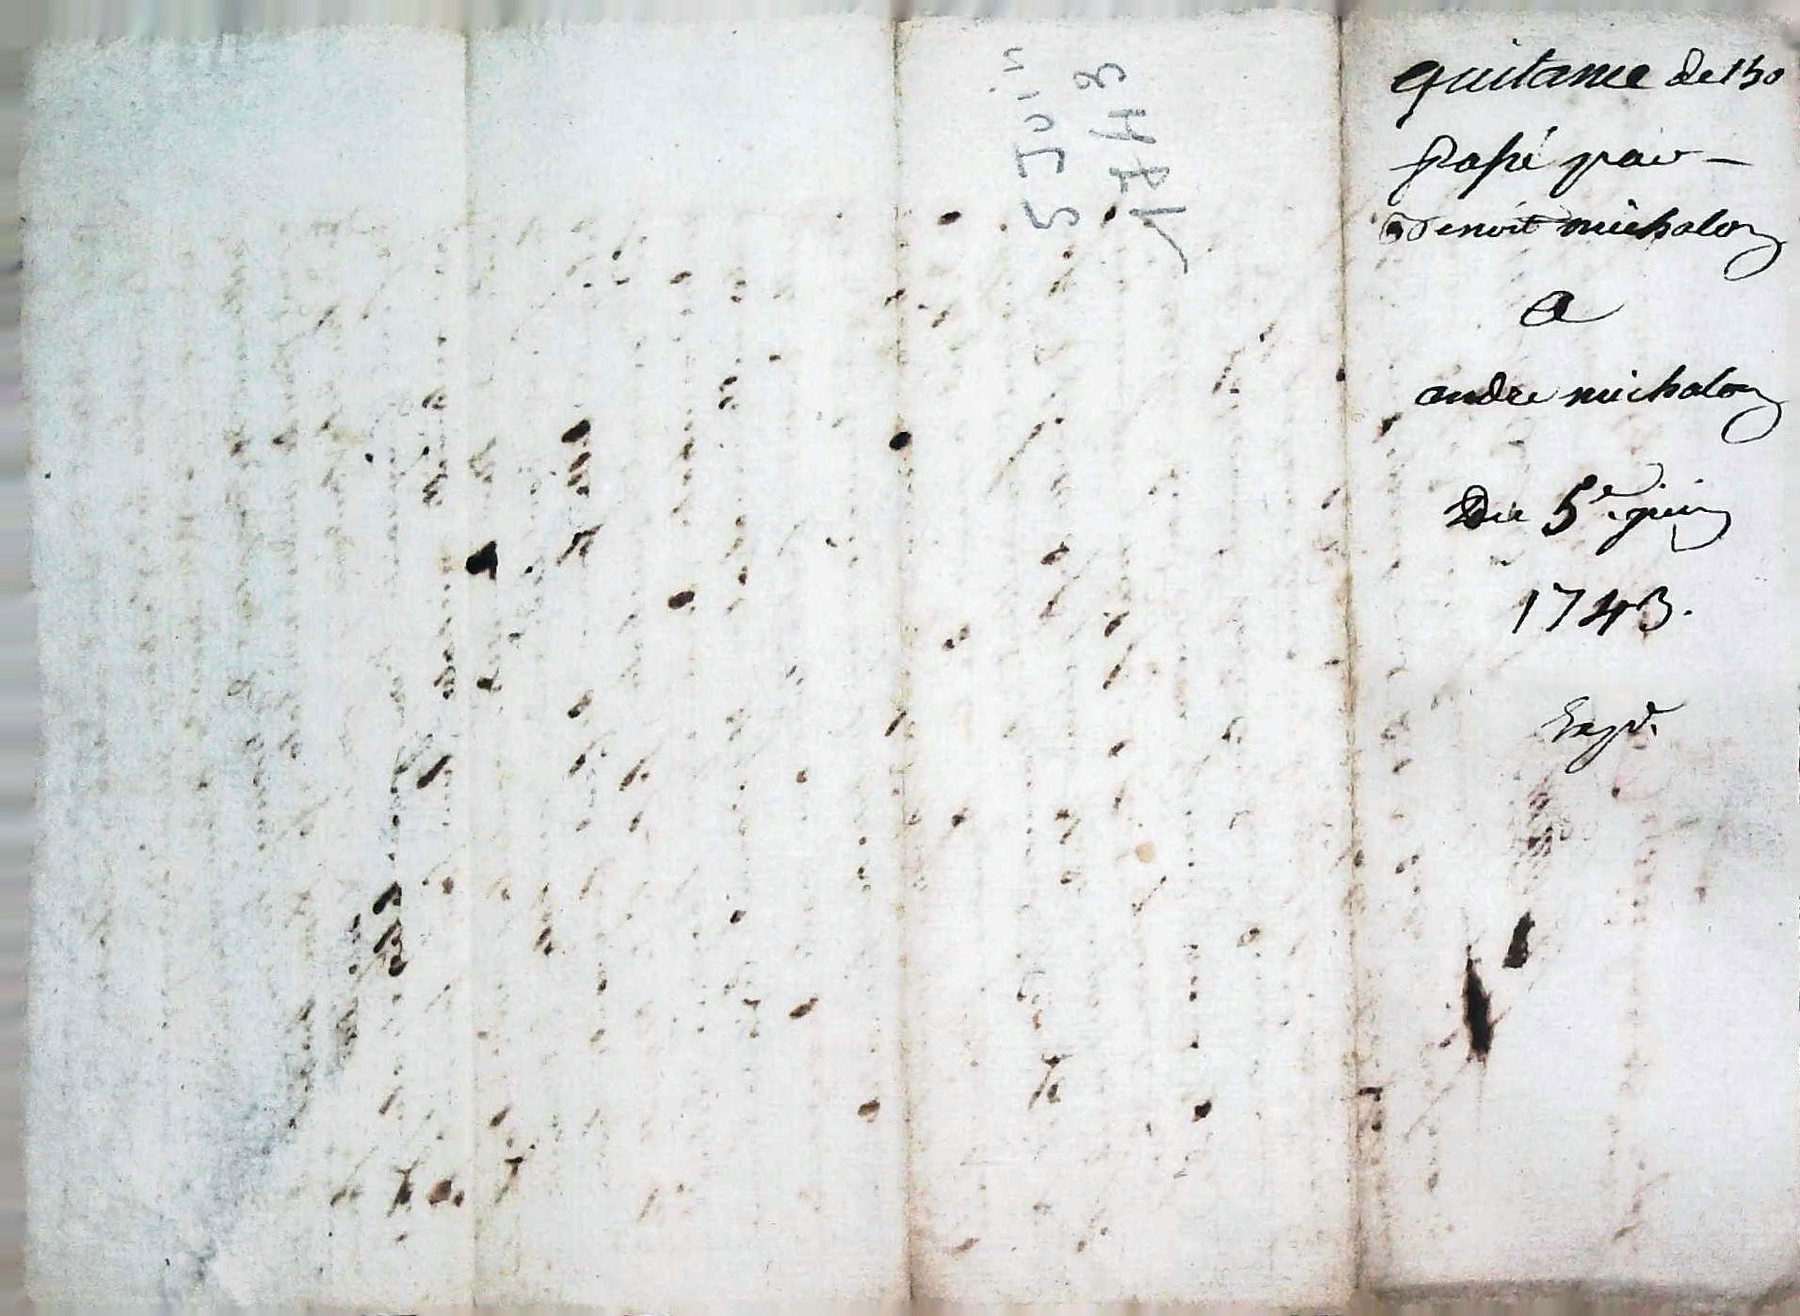 5 JUIN
1743
quitance de 150
passé par
Benoit michalon
a
andre michalon
Du 5e juin
1743.
Expd.